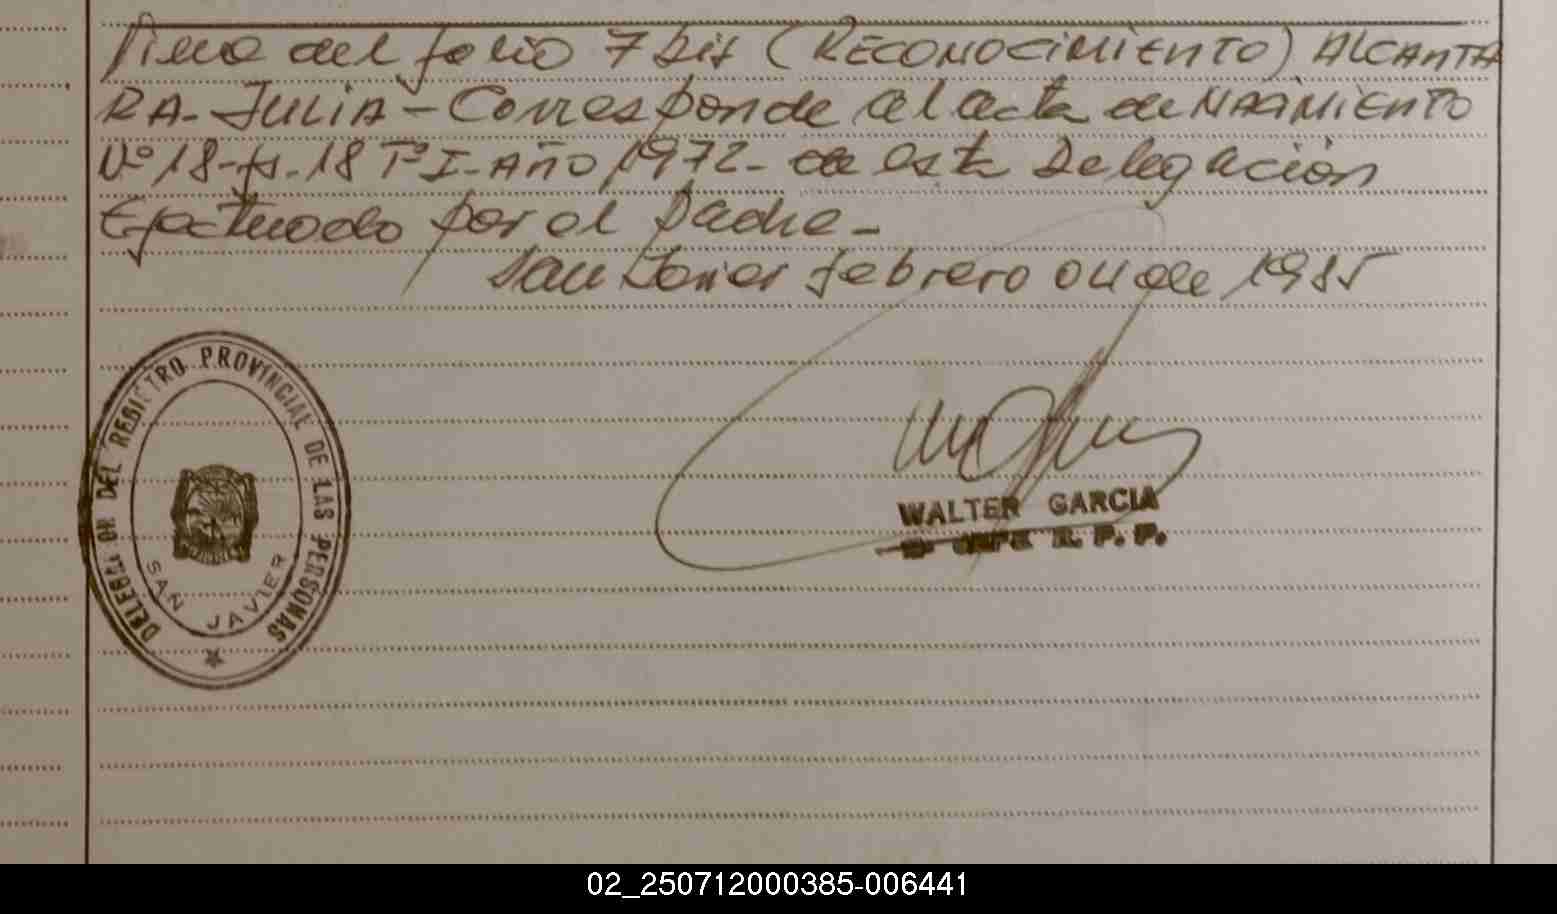 Viene del folio 7 bis (RECONOCIMIENTO) ALCANTA
RA-JULIA-Corresponde al acta de NACIMIENTO
Nº 18-fs. 18 Tº I-AÑO 1972- de esta Delegación
Efectuado por el padre-
San Javier febrero 04 de 1985
DELEGACION DEL REGISTRO PROVINCIAL DE LAS PERSONAS
SAN JAVIER
WALTER GARCIA
R. P. P.
02_250712000385-006441